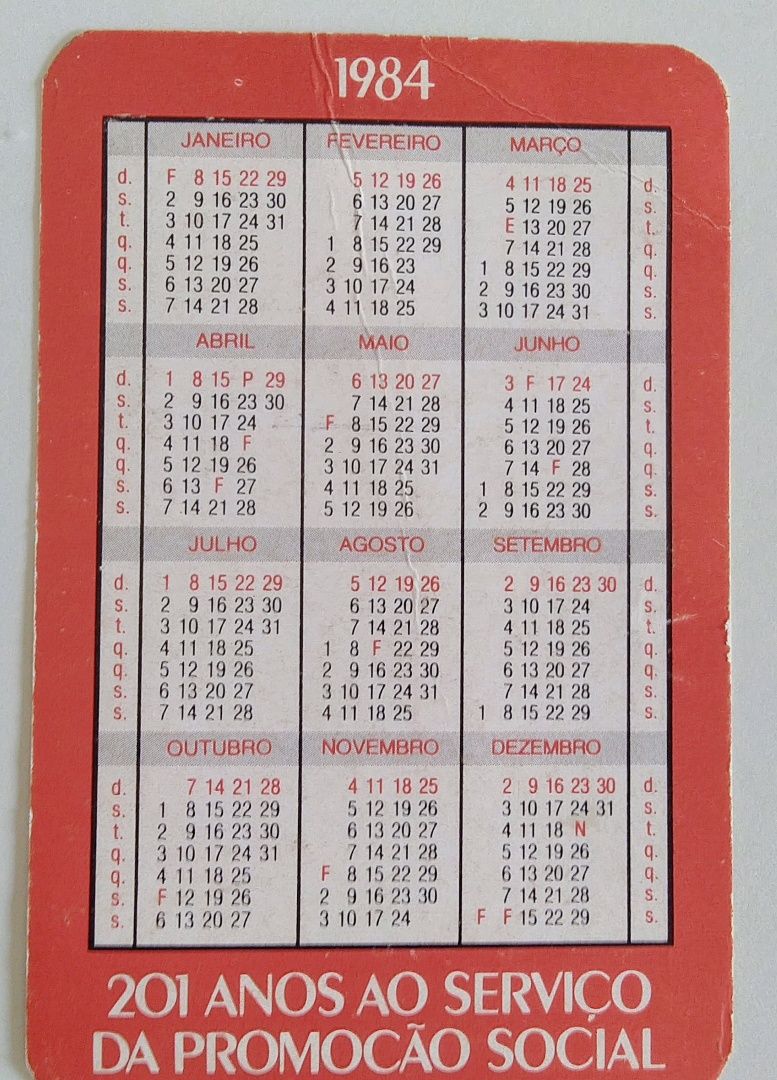 1984
JANEIRO FEVEREIRO MARÇO
d. F 8 15 22 29 5 12 19 26 4 11 18 25 d.
s. 2 9 16 23 30 6 13 20 27 5 12 19 26 s.
t. 3 10 17 24 31 7 14 21 28 E 13 20 27 t.
q. 4 11 18 25 1 8 15 22 29 7 14 21 28 q.
q. 5 12 19 26 2 9 16 23 1 8 15 22 29 q.
s. 6 13 20 27 3 10 17 24 2 9 16 23 30 s.
s. 7 14 21 28 4 11 18 25 3 10 17 24 31 s.
ABRIL MAIO JUNHO
d. 1 8 15 P 29 6 13 20 27 3 F 17 24 d.
s. 2 9 16 23 30 7 14 21 28 4 11 18 25 s.
t. 3 10 17 24 F 8 15 22 29 5 12 19 26 t.
q. 4 11 18 F 2 9 16 23 30 6 13 20 27 q.
q. 5 12 19 26 3 10 17 24 31 7 14 F 28 q.
s. 6 13 F 27 4 11 18 25 1 8 15 22 29 s.
s. 7 14 21 28 5 12 19 26 2 9 16 23 30 s.
JULHO AGOSTO SETEMBRO
d. 1 8 15 22 29 5 12 19 26 2 9 16 23 30 d.
s. 2 9 16 23 30 6 13 20 27 3 10 17 24 s.
t. 3 10 17 24 31 7 14 21 28 4 11 18 25 t.
q. 4 11 18 25 1 8 F 22 29 5 12 19 26 q.
q. 5 12 19 26 2 9 16 23 30 6 13 20 27 q.
s. 6 13 20 27 3 10 17 24 31 7 14 21 28 s.
s. 7 14 21 28 4 11 18 25 1 8 15 22 29 s.
OUTUBRO NOVEMBRO DEZEMBRO
d. 7 14 21 28 4 11 18 25 2 9 16 23 30 d.
s. 1 8 15 22 29 5 12 19 26 3 10 17 24 31 s.
t. 2 9 16 23 30 6 13 20 27 4 11 18 N t.
q. 3 10 17 24 31 7 14 21 28 5 12 19 26 q.
q. 4 11 18 25 F 8 15 22 29 6 13 20 27 q.
s. F 12 19 26 2 9 16 23 30 7 14 21 28 s.
s. 6 13 20 27 3 10 17 24 F F 15 22 29 s.
201 ANOS AO SERVIÇO
DA PROMOÇÃO SOCIAL